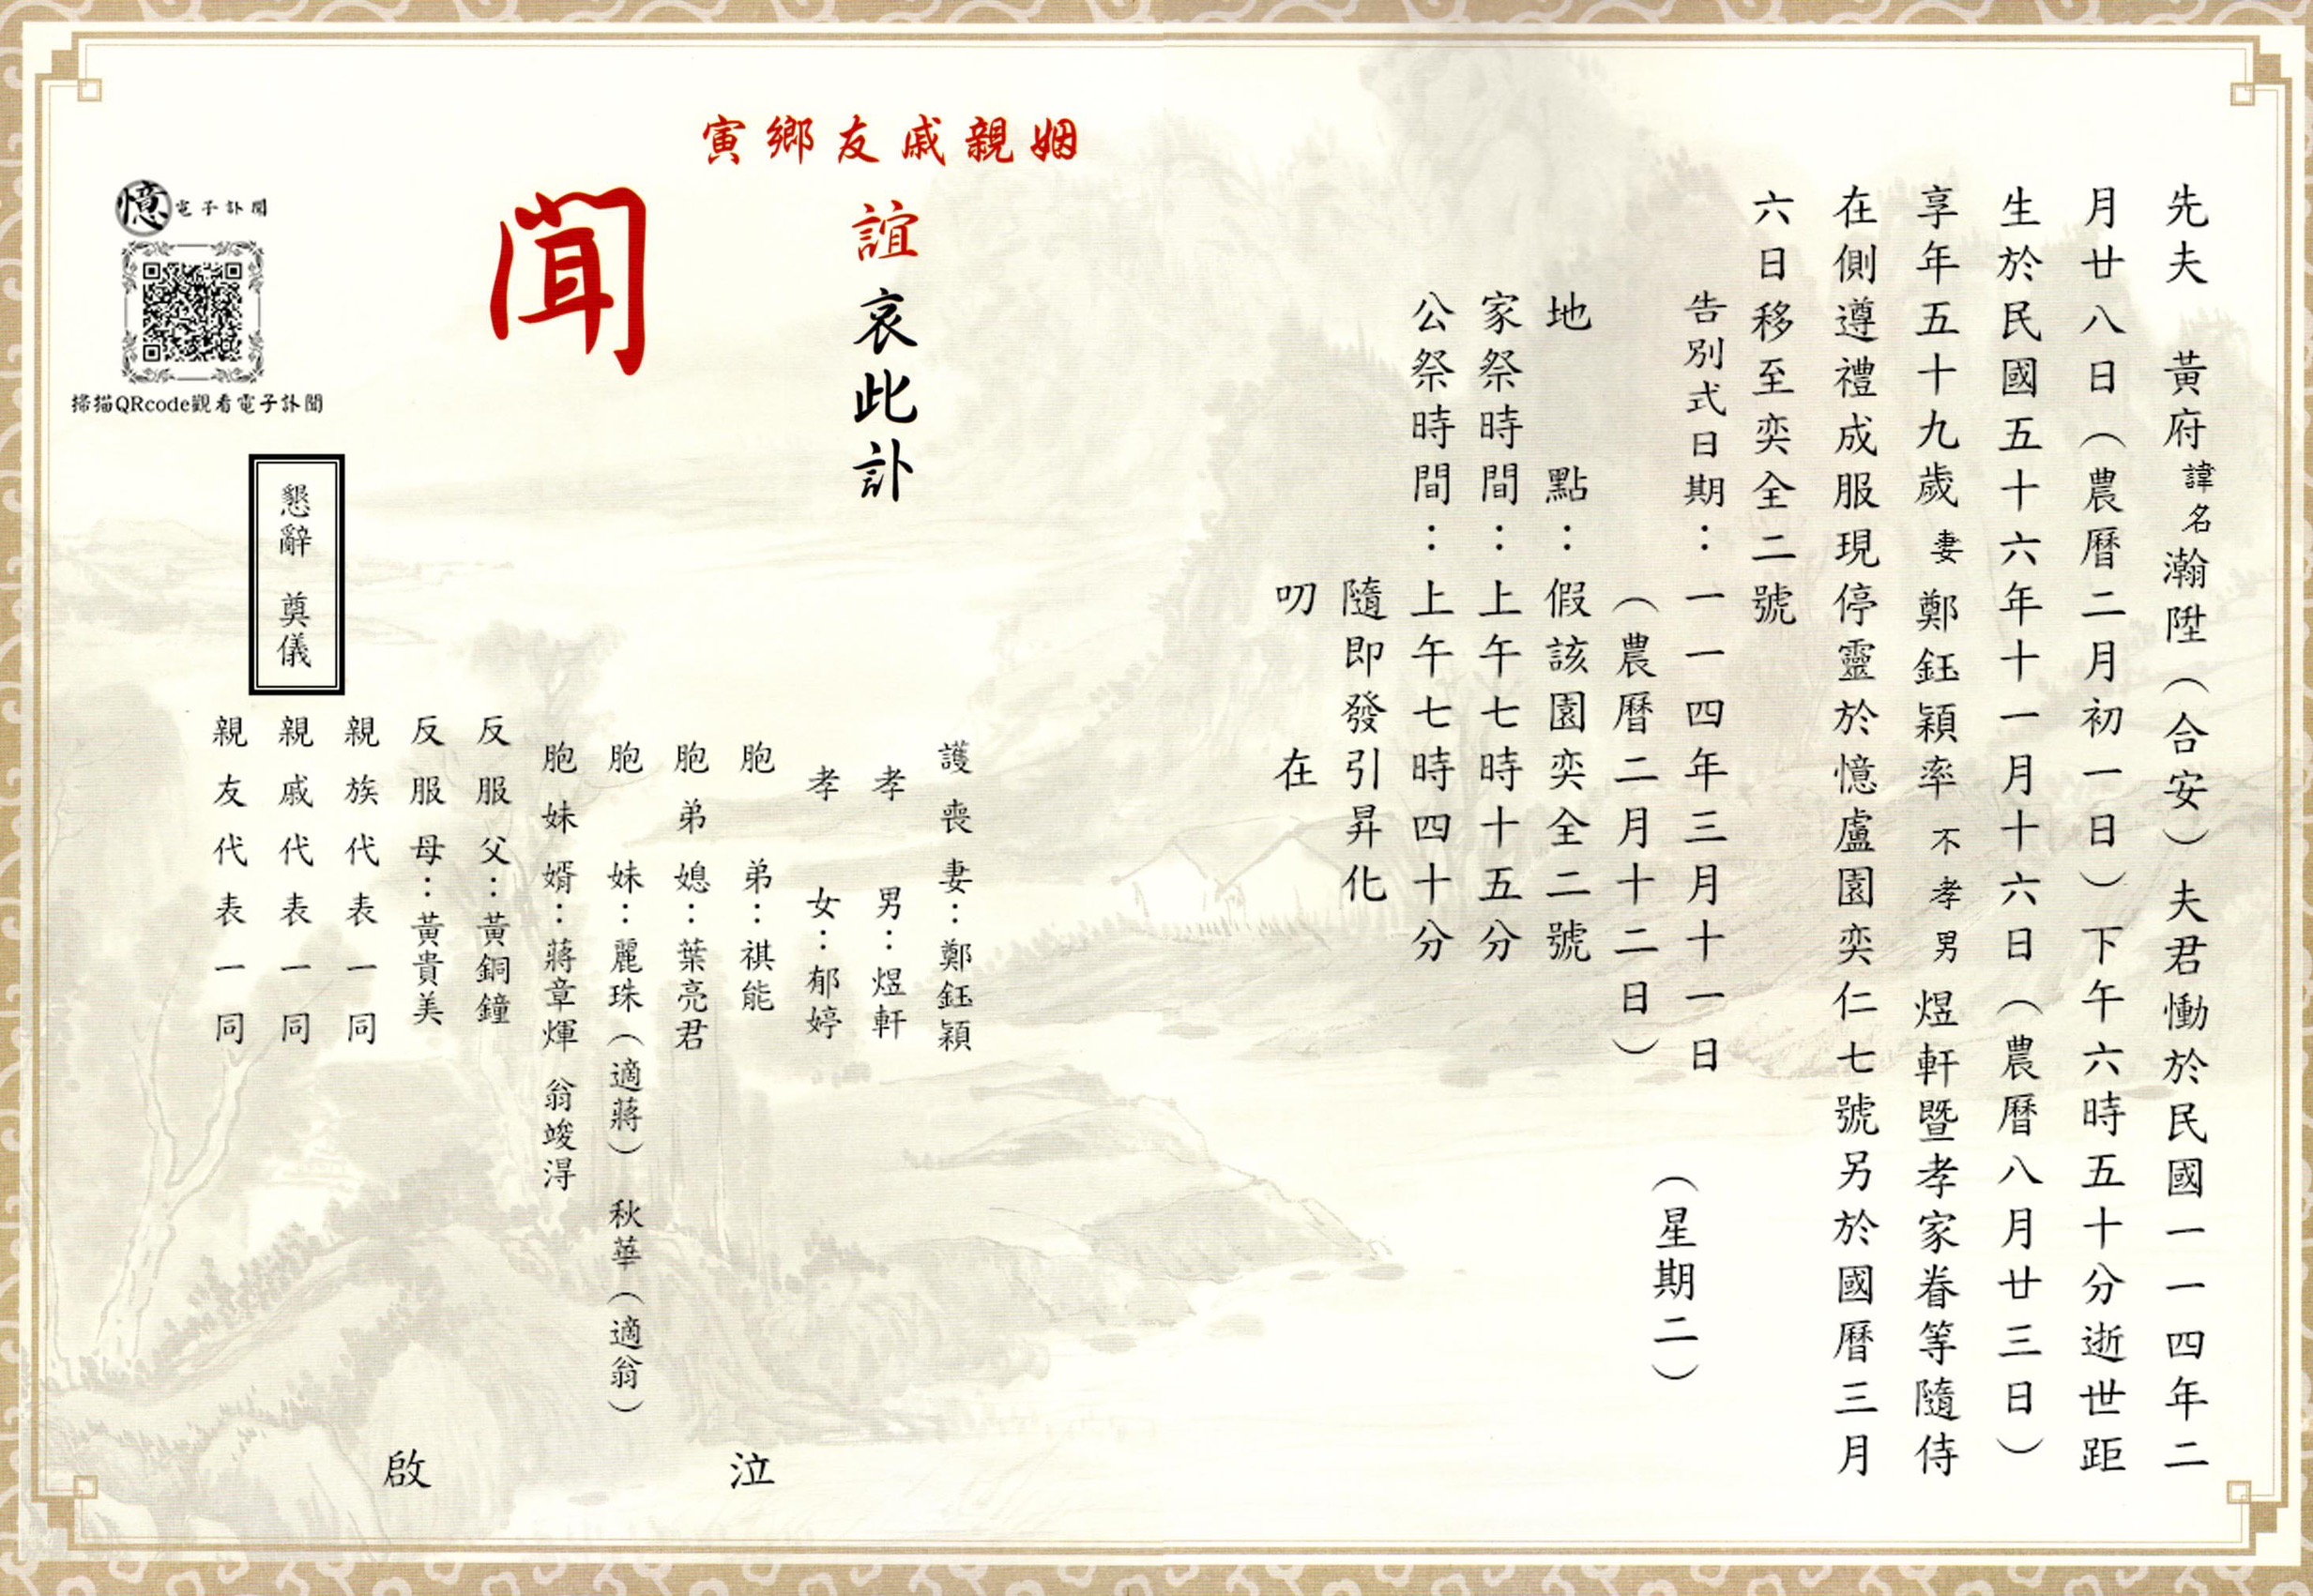 先夫　黃府諱名瀚陞（合安）夫君慟於民國一一四年二
月廿八日（農曆二月初一日）下午六時五十分逝世距
生於民國五十六年十一月十六日（農曆八月廿三日）
享年五十九歲妻鄭鈺穎率不孝男煜軒暨孝家眷等隨侍
在側遵禮成服現停靈於憶盧園奕仁七號另於國曆三月
六日移至奕全二號
告別式日期：一一四年三月十一日
（星期二）
（農曆二月十二日）
地　點：假該園奕全二號
家祭時間：上午七時十五分
公祭時間：上午七時四十分
隨即發引昇化
叨　在
姻親戚友鄉寅
誼哀此訃
聞
護喪妻：鄭鈺穎
孝　男：煜軒
孝　女：郁婷
胞　弟：祺能
胞弟媳：葉亮君
胞　妹：麗珠（適蔣）　秋華（適翁）
胞妹婿：蔣章煇　翁竣淂
反服父：黃銅鐘
反服母：黃貴美
親族代表一同
親戚代表一同
親友代表一同
泣　啟
憶電子訃聞
掃描QRcode觀看電子訃聞
懇辭　奠儀